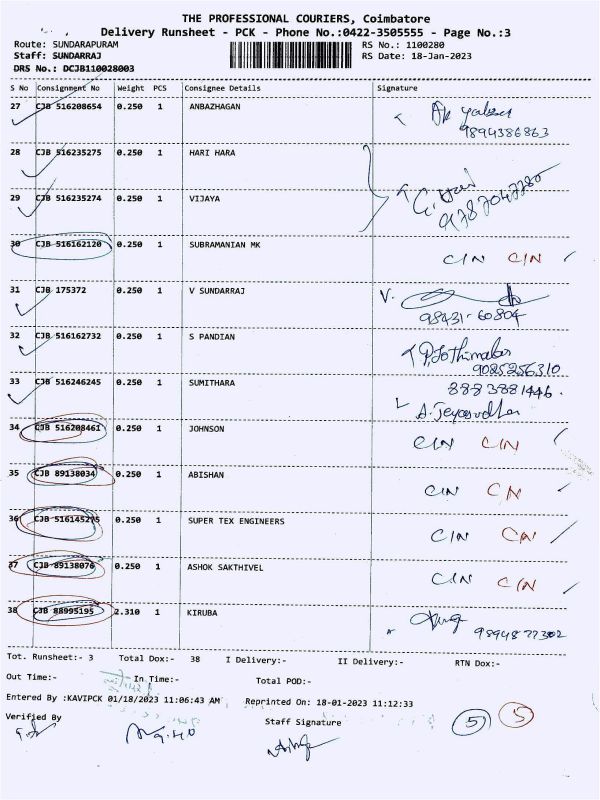 THE PROFESSIONAL COURIERS, Coimbatore
Delivery Runsheet - PCK - Phone No.:0422-3505555 - Page No.:3
Route: SUNDARAPURAM RS No.: 1100280
Staff: SUNDARRAJ RS Date: 18-Jan-2023
DRS No.: DCJB110028003
S No Consignment No Weight PCS Consignee Details Signature
27 CJB 516208654 0.250 1 ANBAZHAGAN
9894386863
28 CJB 516235275 0.250 1 HARI HARA
29 CJB 516235274 0.250 1 VIJAYA
30 CJB 516162120 0.250 1 SUBRAMANIAN MK C/N C/N
31 CJB 175372 0.250 1 V SUNDARRAJ V.
98431-60804
32 CJB 516162732 0.250 1 S PANDIAN
9085256310
33 CJB 516246245 0.250 1 SUMITHARA 8883881446.
34 CJB 516208461 0.250 1 JOHNSON C/N C/N
35 CJB 89138034 0.250 1 ABISHAN C/N C/N
36 CJB 516145275 0.250 1 SUPER TEX ENGINEERS C/N C/N
37 CJB 89138076 0.250 1 ASHOK SAKTHIVEL C/N C/N
38 CJB 88995195 2.310 1 KIRUBA
9894877302
Tot. Runsheet:- 3 Total Dox:- 38 I Delivery:- II Delivery:- RTN Dox:-
Out Time:- In Time:- Total POD:-
Entered By :KAVIPCK 01/18/2023 11:06:43 AM Reprinted On: 18-01-2023 11:12:33
Verified By Staff Signature 5 5